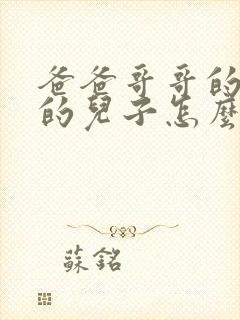 爸爸哥哥的
的兒子怎麼
蘇銘